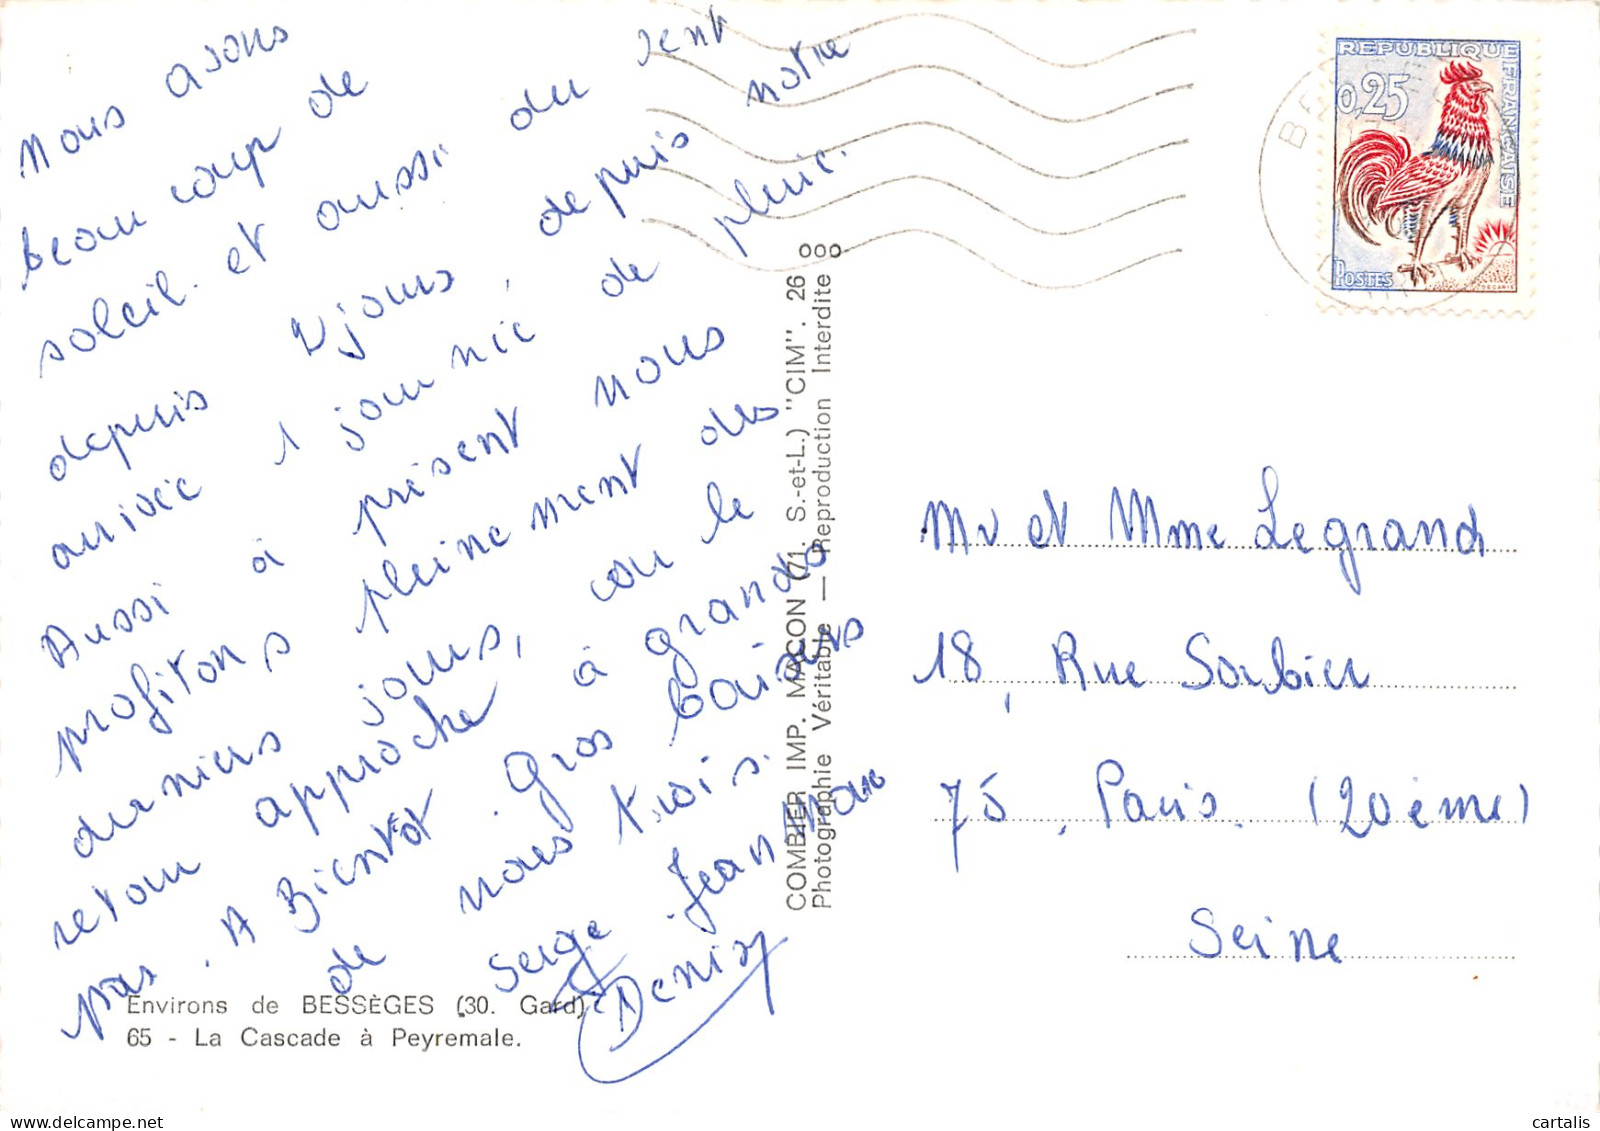 Nous avons
beaucoup de
soleil. et aussi du vent
depuis 2 jours, depuis notre
arrivée 1 journée de pluie.
Aussi à présent nous
profitons pleinement des
derniers jours, car le
retour approche à grands
pas. A Bientôt. Gros baisers
de nous trois.
Serge Jean Marc
Denise
Environs de BESSÈGES (30. Gard)
65 - La Cascade à Peyremale.
COMBIER IMP. MACON (71. S.-et-L.) "CIM". 26
Photographie Véritable — Reproduction Interdite
REPUBLIQUE FRANÇAISE
0,25
POSTES
DECARIS
BE
Mr et Mme Legrand
18, Rue Sorbier
75. Paris. (20ème)
Seine
cartalis